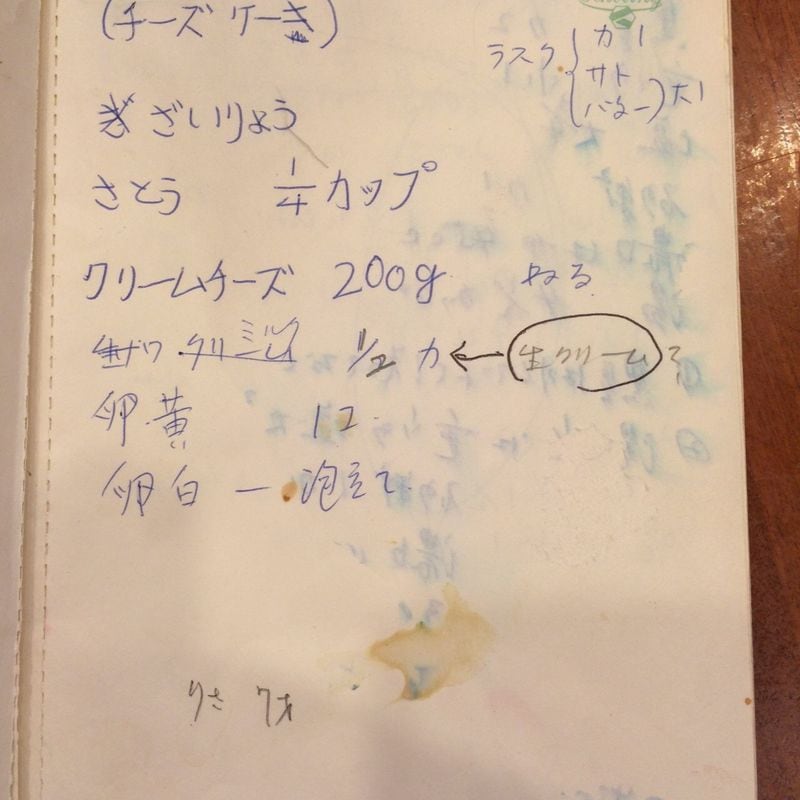 (チーズケーキ)
ラスク
カ 1
サト
バター
大1
ざいりょう
さとう 1/4カップ
クリームチーズ 200g ねる
1/2 カ ← 生クリーム
卵黄 1コ
卵白 ー 泡立て
りさ 7才